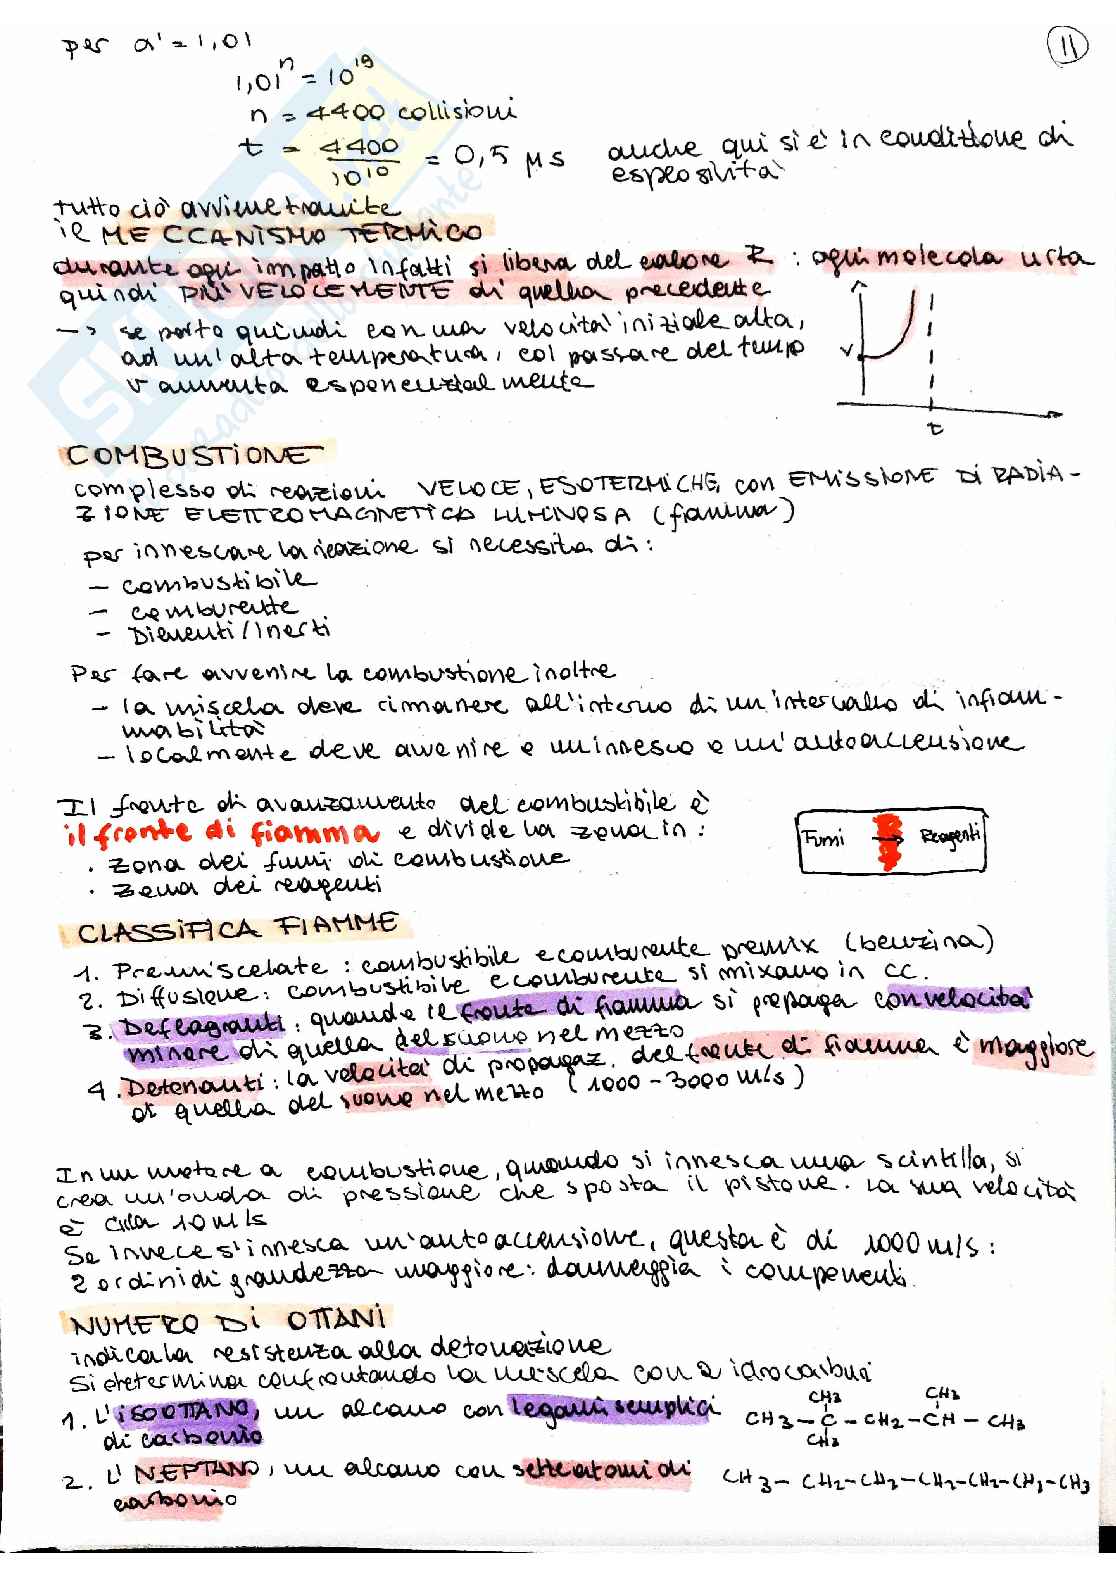 per a' = 1,01
11
1,01^n = 10^19
n = 4400 collisioni
t = 4400/10^10 = 0,5 μs anche qui si è in condizione di
esplosività
tutto ciò avviene tramite
il MECCANISMO TERMICO
durante ogni impatto infatti si libera del calore R : ogni molecola urta
quindi PIÙ VELOCEMENTE di quella precedente
→ se parto quindi con una velocità iniziale alta,
ad un'alta temperatura, col passare del tempo
v aumenta esponenzialmente
v
t
COMBUSTIONE
complesso di reazioni VELOCE, ESOTERMICHE, con EMISSIONE DI RADIA-
ZIONE ELETTROMAGNETICA LUMINOSA (fiamma)
per innescare la reazione si necessita di:
- combustibile
- comburente
- Diluenti/Inerti
Per fare avvenire la combustione inoltre
- la miscela deve rimanere all'interno di un'intervallo di infiam-
mabilità
- localmente deve avvenire o un innesco o un'autoaccensione
Il fronte di avanzamento del combustibile è
il fronte di fiamma e divide la zona in:
. zona dei fumi di combustione
. zona dei reagenti
Fumi → Reagenti
CLASSIFICA FIAMME
1. Premiscelate: combustibile e comburente premix (benzina)
2. Diffusione: combustibile e comburente si mixano in cc.
3. Deflagranti: quando il fronte di fiamma si propaga con velocità
minore di quella del suono nel mezzo
4. Detonanti: la velocità di propagaz. del fronte di fiamma è maggiore
di quella del suono nel mezzo (1000 - 3000 m/s)
In un motore a combustione, quando si innesca una scintilla, si
crea un'onda di pressione che sposta il pistone. La sua velocità
è circa 10 m/s
Se invece s'innesca un'autoaccensione, questa è di 1000 m/s:
2 ordini di grandezza maggiore: danneggia i componenti.
NUMERO DI OTTANI
indica la resistenza alla detonazione
Si determina confrontando la miscela con 2 idrocarburi
1. L'ISOOTTANO, un alcano con legami semplici
di carbonio
CH3 CH3
CH3 - C - CH2 - CH - CH3
CH3
2. L'N-EPTANO, un alcano con sette atomi di
carbonio
CH3 - CH2 - CH2 - CH2 - CH2 - CH2 - CH3